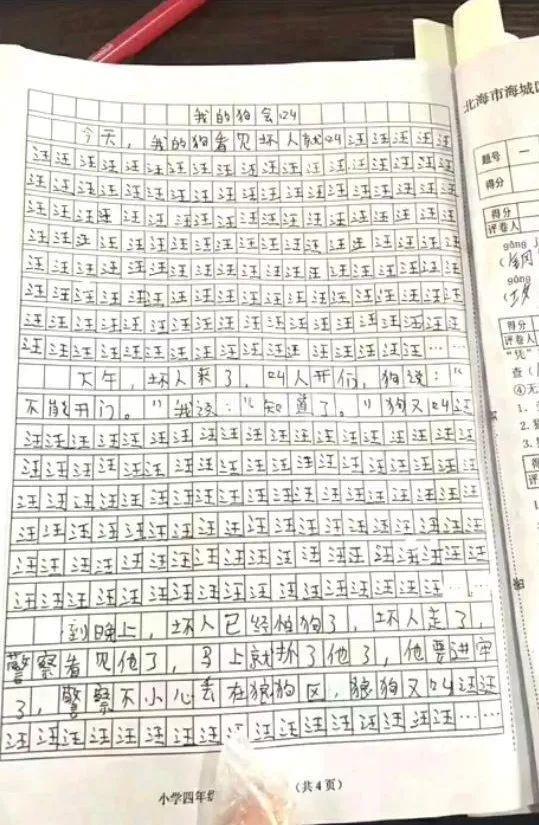 我的狗会叫
今天，我的狗看见坏人就叫汪汪汪汪汪
汪汪汪汪汪汪汪汪汪汪汪汪汪汪汪汪汪汪汪
汪汪汪汪汪汪汪汪汪汪汪汪汪汪汪汪汪汪汪
汪汪汪汪汪汪汪汪汪汪汪汪汪汪汪汪汪汪汪
汪汪汪汪汪汪汪汪汪汪汪汪汪汪汪汪汪汪汪
汪汪汪汪汪汪汪汪汪汪汪汪汪汪汪汪汪汪汪
汪汪汪汪汪汪汪汪汪汪汪汪汪汪汪汪汪汪汪
汪汪汪汪汪汪汪汪汪汪汪汪汪汪汪汪汪汪汪
汪汪汪汪汪汪汪汪汪汪汪汪汪汪汪汪汪……
下午，坏人来了，叫人开们，狗说：“
不能开门。”我说：“知道了。”狗又叫汪
汪汪汪汪汪汪汪汪汪汪汪汪汪汪汪汪汪汪汪
汪汪汪汪汪汪汪汪汪汪汪汪汪汪汪汪汪汪汪
汪汪汪汪汪汪汪汪汪汪汪汪汪汪汪汪汪汪汪
汪汪汪汪汪汪汪汪汪汪汪汪汪汪汪汪汪汪汪
汪汪汪汪汪汪汪汪汪汪汪汪汪汪汪汪汪汪汪
汪汪汪汪汪汪汪汪汪汪汪汪汪汪汪汪汪……
到晚上，坏人已经怕狗了，坏人走了，
警察看见他了，马上就抓了他了，他要进牢
了，警察不小心丢在狼狗区，狼狗又叫汪汪
汪汪汪汪汪汪汪汪汪汪汪汪汪汪汪汪汪……
小学四年
（共4页）
北海市海城区
题号 一
得分
得分
评卷人
gāng
gōng
得分
评卷人
查（
④无
1.
2.
3.